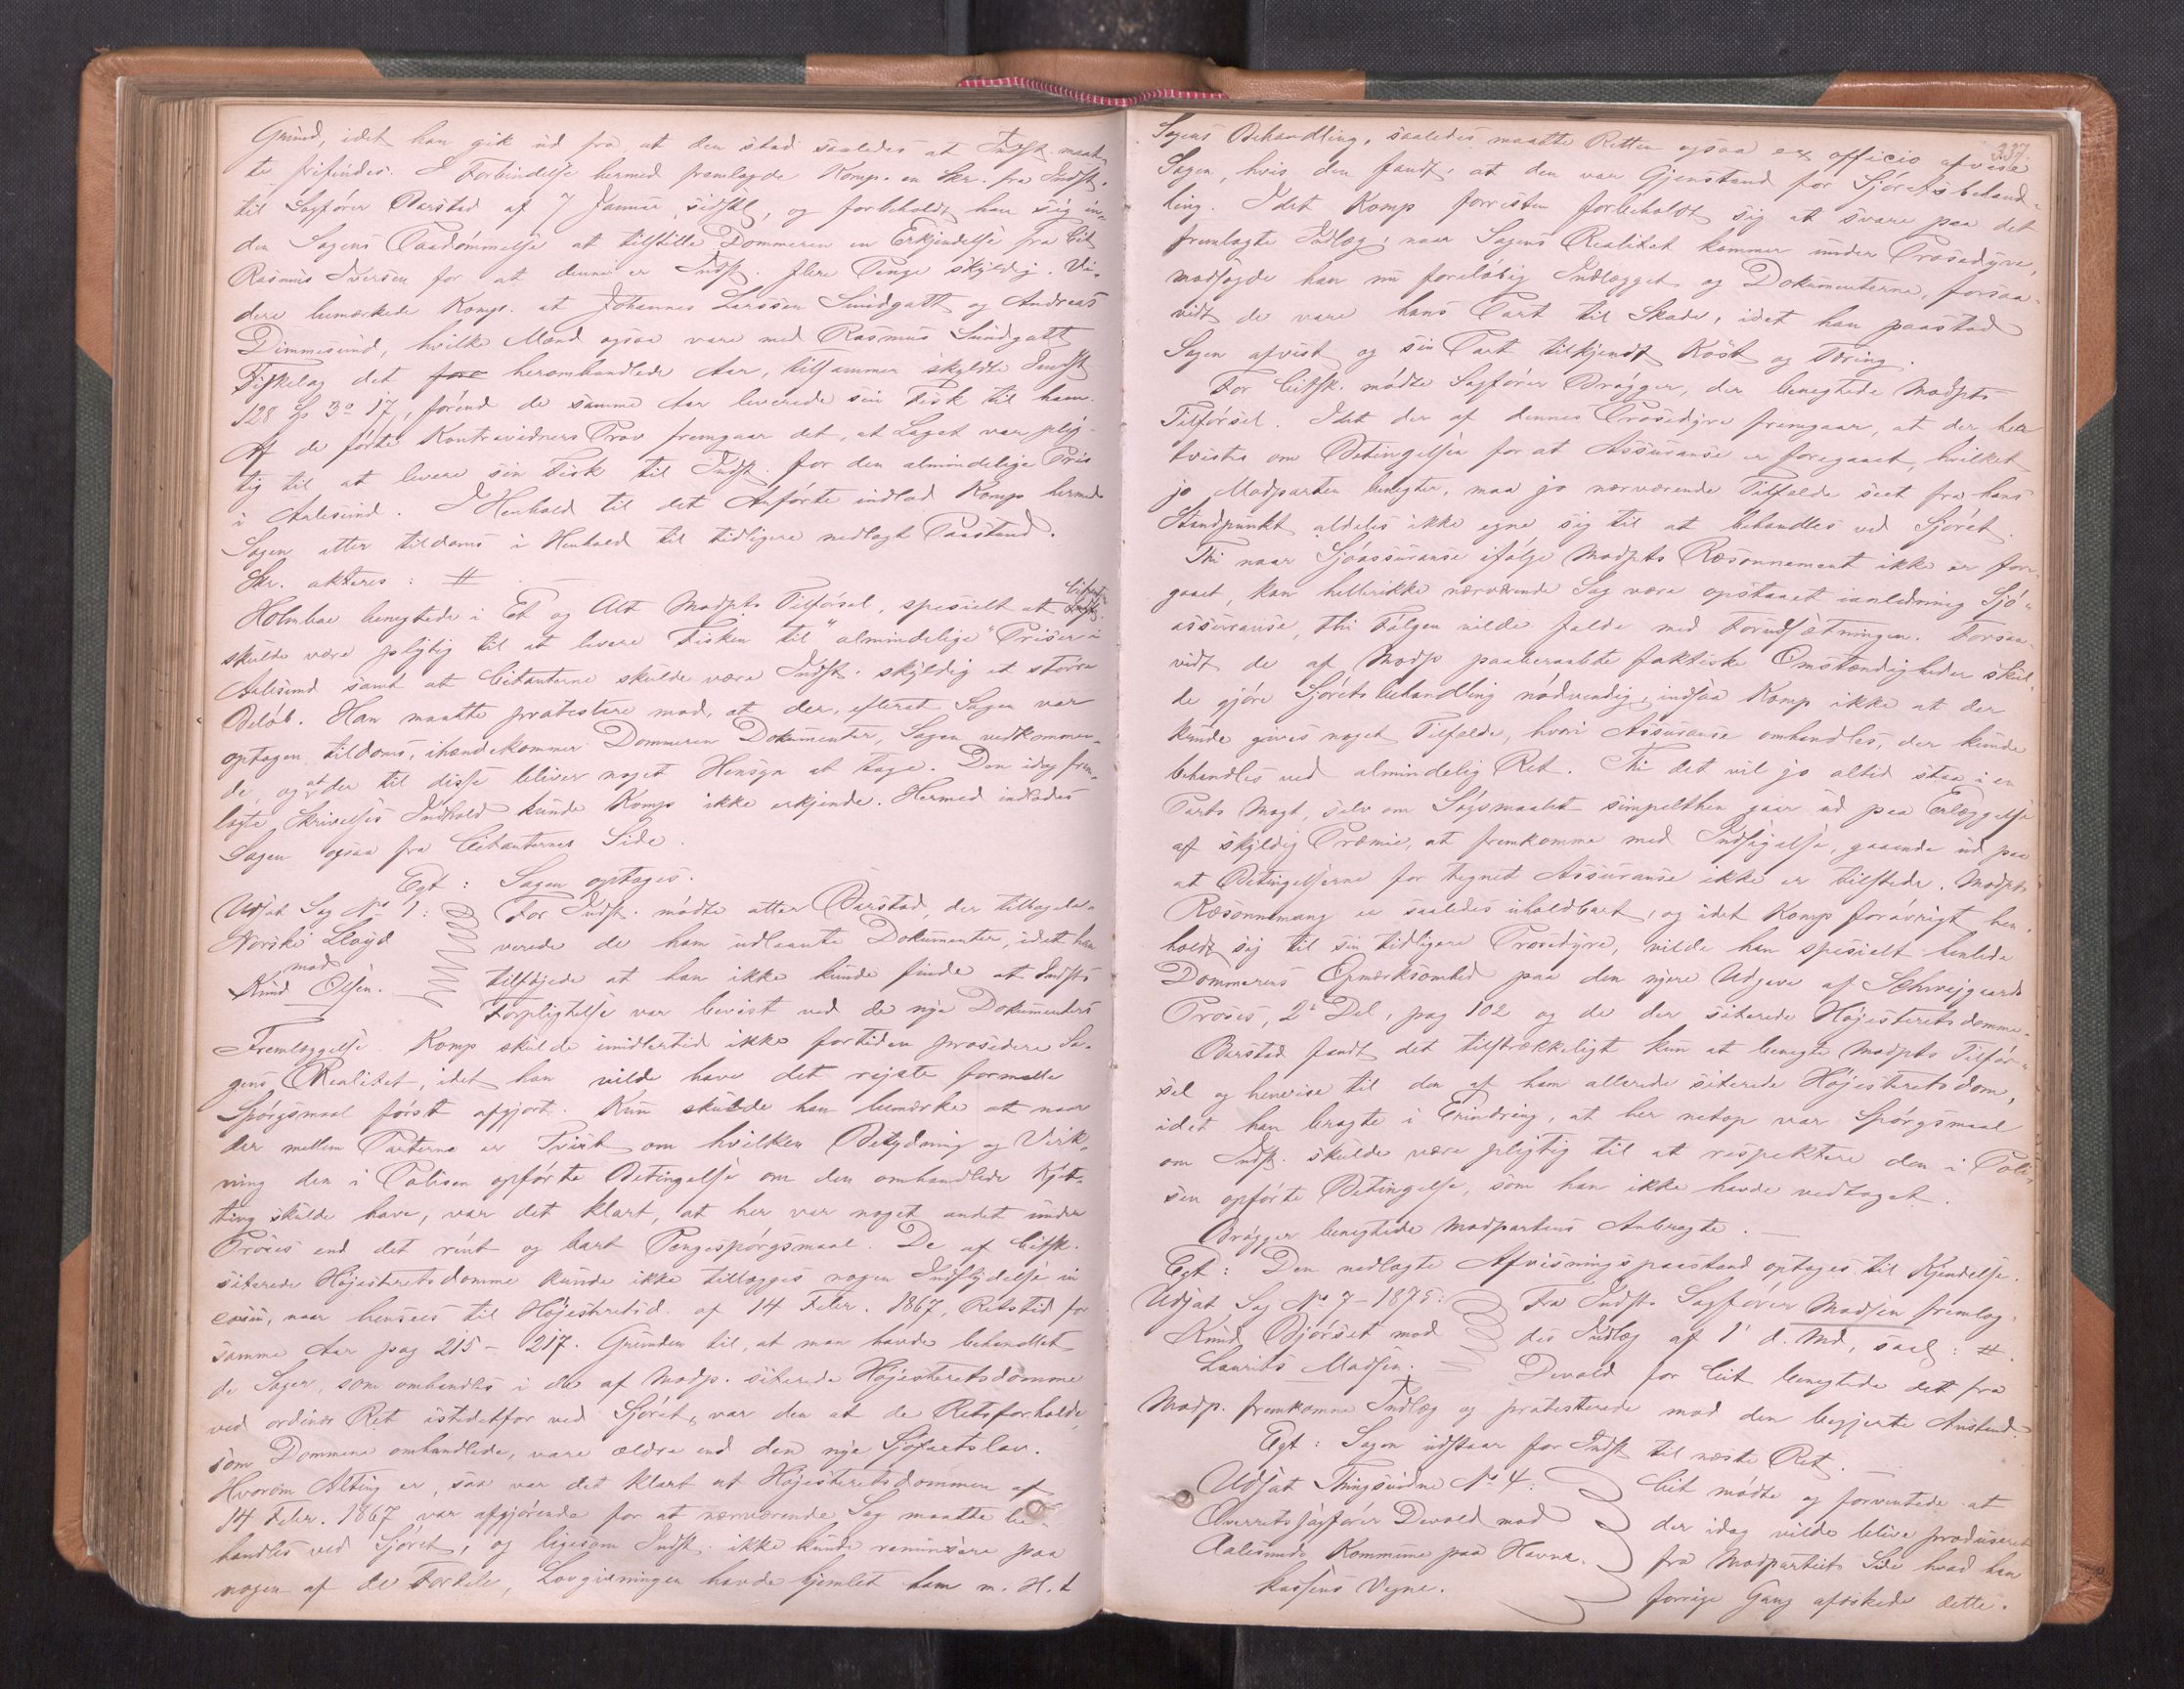 Grund, idet han gik ud fra, at den stod saaledes at Indst. maat-
te frifindes. I Forbindelse hermed fremlagde Komp. en Skr. fra Indst.
til Sagfører Barstad af 7 Januar sidstl, og forbeholdt han sig in-
den Sagens Paadømmelse at tilstille Dommeren en Erkjendelse fra Cit
Rasmus Iversen for at denne er Indst. flere Penge skyldig. Vi-
dere bemærkede Komp. at Johannes Larssen Sundgatt og Andreas
Dimmesund, hvilke Mænd ogsaa vare med Rasmus Sundgatt
Fiskelag det fore heromhandlede Aar, tilsammen skyldte Indst
128 Sp 3 o 17, førend de samme Aar leverede sin Fisk til ham.
Af de førte Kontravidners Prov fremgaar det, at Laget var plig-
tig til at levere sin Fisk til Indst. for den almindelige Pris
i Aalesund. I Henhold til det Anførte indlod Komp hermed
Sagen atter tildoms i Henhold til tidligere nedlagt Paastand.
Skr. akteres: #
Holmboe benegtede i Et og Alt Modpts Tilførsel, spesielt at Citant
skulde være pligtig til at levere Fisken til "almindelige" Priser i
Aalesund samt at Citanterne skulde være Indst. skyldig et større
Beløb. Han maatte protestere mod, at der, efterat Sagen var
optagen tildoms, ihændekommer Dommeren Dokumenter, Sagen vedkommen-
de, og at der til disse bliver noget Hensyn at tage. Den idag frem-
lagte Skrivelses Indhold kunde Komp ikke erkjende. Hermed indlodes
Sagen ogsaa fra Citanternes Side.
Egt: Sagen optages.
Udsat Sag No 1: For Indst. mødte atter Barstad, der tilbagele-
Norske Lloyd verede de ham udlaante Dokumenter, idet han
mod tilføjede at han ikke kunde finde at Indsts
Knud Olsen. Forpligtelse var bevist ved de nye Dokumenters
Fremlæggelse Komp skulde imidlertid ikke fortiden prosedere Sa-
gens Realitet, idet han vilde have det rejste formelle
Spørgsmaal først afgjort. Kun skulde han bemærke at naar
der mellem Parterne er Tvist om hvilken Betydning og Virk-
ning den i Polisen opførte Betingelse om den omhandlede Kjet-
ting skulde have, var det klart, at her var noget andet under
Proces end det rent og bart Pengespørgsmaal. De af Citsk.
siterede Højesteretsdomme kunde ikke tillægges nogen Indflydelse in
casu, naar hensees til Højesteretsd. af 14 Febr. 1867, Retstid for
samme Aar pag 215 - 217. Grunden til, at man havde behandlet
de Sager, som omhandles i de af Modp. siterede Højesteretsdomme
ved ordinær Ret istedetfor ved Sjøret, var den at de Retsforholde,
som Dommene omhandlede, vare ældre end den nye Sjøfartslov.
Hvorom Alting er, saa var det klart at Højesteretsdommen af
14 Febr. 1867 var afgjørende for at nærværende Sag maatte be-
handles ved Sjøret, og ligesom Indst. ikke kunde renunsere paa
nogen af de Fordele, Lovgivningen havde hjemlet ham m. H. t
337.
Sagens Behandling, saaledes maatte Retten ogsaa ex officio afvise
Sagen, hvis den fandt, at den var Gjenstand for Sjøretsbehand-
ling. Idet Komp forresten forbeholdt sig at svare paa det
fremlagte Indlæg, naar Sagens Realitet kommer under Prosedyre,
modsagde han nu foreløbig Indlægget og Dokumenterne, forsaa-
vidt de vare hans Part til Skade, idet han paastod
Sagen afvist og sin Part tilkjendt Kost og Tæring.
For Citsk. mødte Sagfører Brøgger, der benegtede Modpts
Tilførsel. Idet der af dennes Prosedyre fremgaar, at der her
tvistes om Betingelsen for at Assuranse er foregaaet, hvilket
jo Modparten benegter, maa jo nærværende Tilfælde seet fra hans
Standpunkt aldeles ikke egne sig til at behandles ved Sjøret.
Thi naar Sjøassuranse ifølge Modpts Ræsonnement ikke er fore-
gaaet, kan hellerikke nærværende Sag være opstaaet ianledning Sjø-
assuranse, thi Følgen vilde falde med Forudsætningen. Forsaa-
vidt de af Modp paaberaabte faktiske Omstændigheder skul-
de gjøre Sjøretsbehandling nødvendig, indsaa Komp ikke at der
kunde gives noget Tilfælde, hvori Assuranse omhandles, der kunde
behandles ved almindelig Ret. Thi det vil jo altid staa i en
Parts Magt, selv om Søgsmaalet simpelthen gaar ud paa Erlæggelse
af skyldig Præmie, at fremkomme med Indsigelse, gaaende ud paa
at Betingelserne for tegnet Assuranse ikke er tilstede. Modpts
Ræsonnemang er saaledes uholdbart, og idet Komp forøvrigt hen-
holdt sig til sin tidligere Prosedyre, vilde han spesielt henlede
Dommerens Opmærksomhed paa den nyere Udgave af Schweigaards
Proses, 2 Del, pag 102 og de der siterede Højesteretsdomme.
Barstad fandt det tilstrækkeligt kun at benegte Modpts Tilfør-
sel og henvise til den af ham allerede siterede Højesteretsdom,
idet han bragte i Erindring, at her netop var Spørgsmaal
om Indst. skulde være pligtig til at respektere den i Poli-
sen opførte Betingelse, som han ikke havde vedtaget.
Brøgger benegtede Modpartens Anbragte.
Egt: Den nedlagte Afvisningspaastand optages til Kjendelse.
Udsat Sag No 7 - 1875: Fra Indsts Sagfører Madsen fremlag-
Knud Bjørset mod des Indlæg af 1' d. Md, saal: #.
Laurits Madsen. Devold for Cit benegtede det fra
Modp. fremkomne Indlæg og protesterede mod den begjerte Anstand.
Egt: Sagen udstaar for Indst til næste Ret.
Udsat Thingsvidne No 4: Cit mødte og forventede at
Overretssagfører Devold mod der idag vilde blive produseret
Aalesunds Kommune paa Havne- fra Modpartiets Side hvad han
kassens Vegne. forrige Gang afæskede dette.